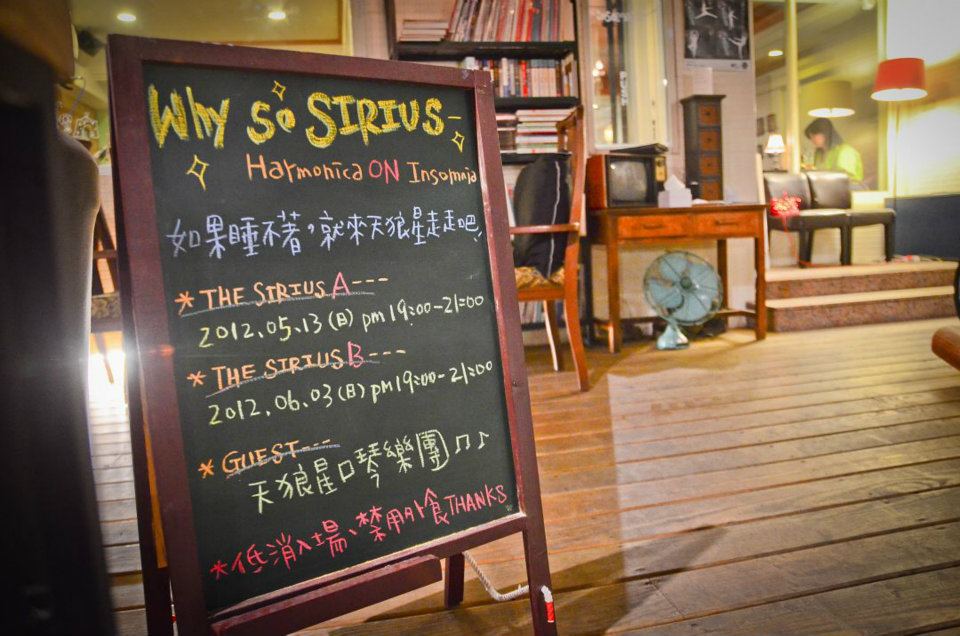 Why So SIRIUS-
Harmonica ON Insomnia
如果睡不著，就來天狼星走走吧，
* THE SIRIUS A---
2012.05.13(日) pm 19:00-21:00
* THE SIRIUS B---
2012.06.03(日) pm 19:00-21:00
* GUEST---
天狼星口琴樂團♫♪
*低消入場、禁用外食THANKS